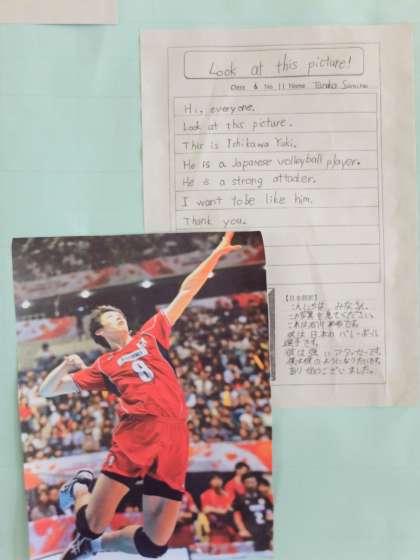 Look at this picture!
Class 6 No. 11 Name Tanaka
Hi, everyone.
Look at this picture.
This is Ichikawa Yuki.
He is a Japanese volleyball player.
He is a strong attacker.
I want to be like him.
Thank you.
【日本語訳】
こんにちは みなさん。
この写真を見てください。
これは石川 です。
彼は 日本の バレーボール
選手です。
彼は 強い アタッカーです。
僕は彼のようになりたいです。
ありがとうございました。
8